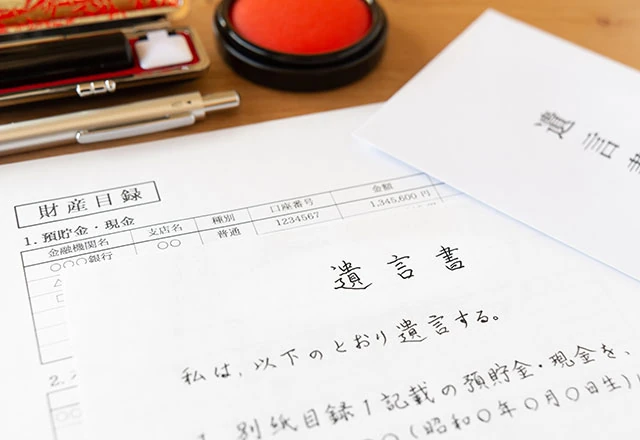 遺言書
財産目録
1. 預貯金・現金
金融機関名 支店名 種別 口座番号 金額
○○○銀行 ○○ 普通 1234567 1,345,600円
2.
○○
遺言書
私は、以下のとおり遺言する。
1 別紙目録1記載の預貯金・現金を、
(昭和〇年〇月〇日生)